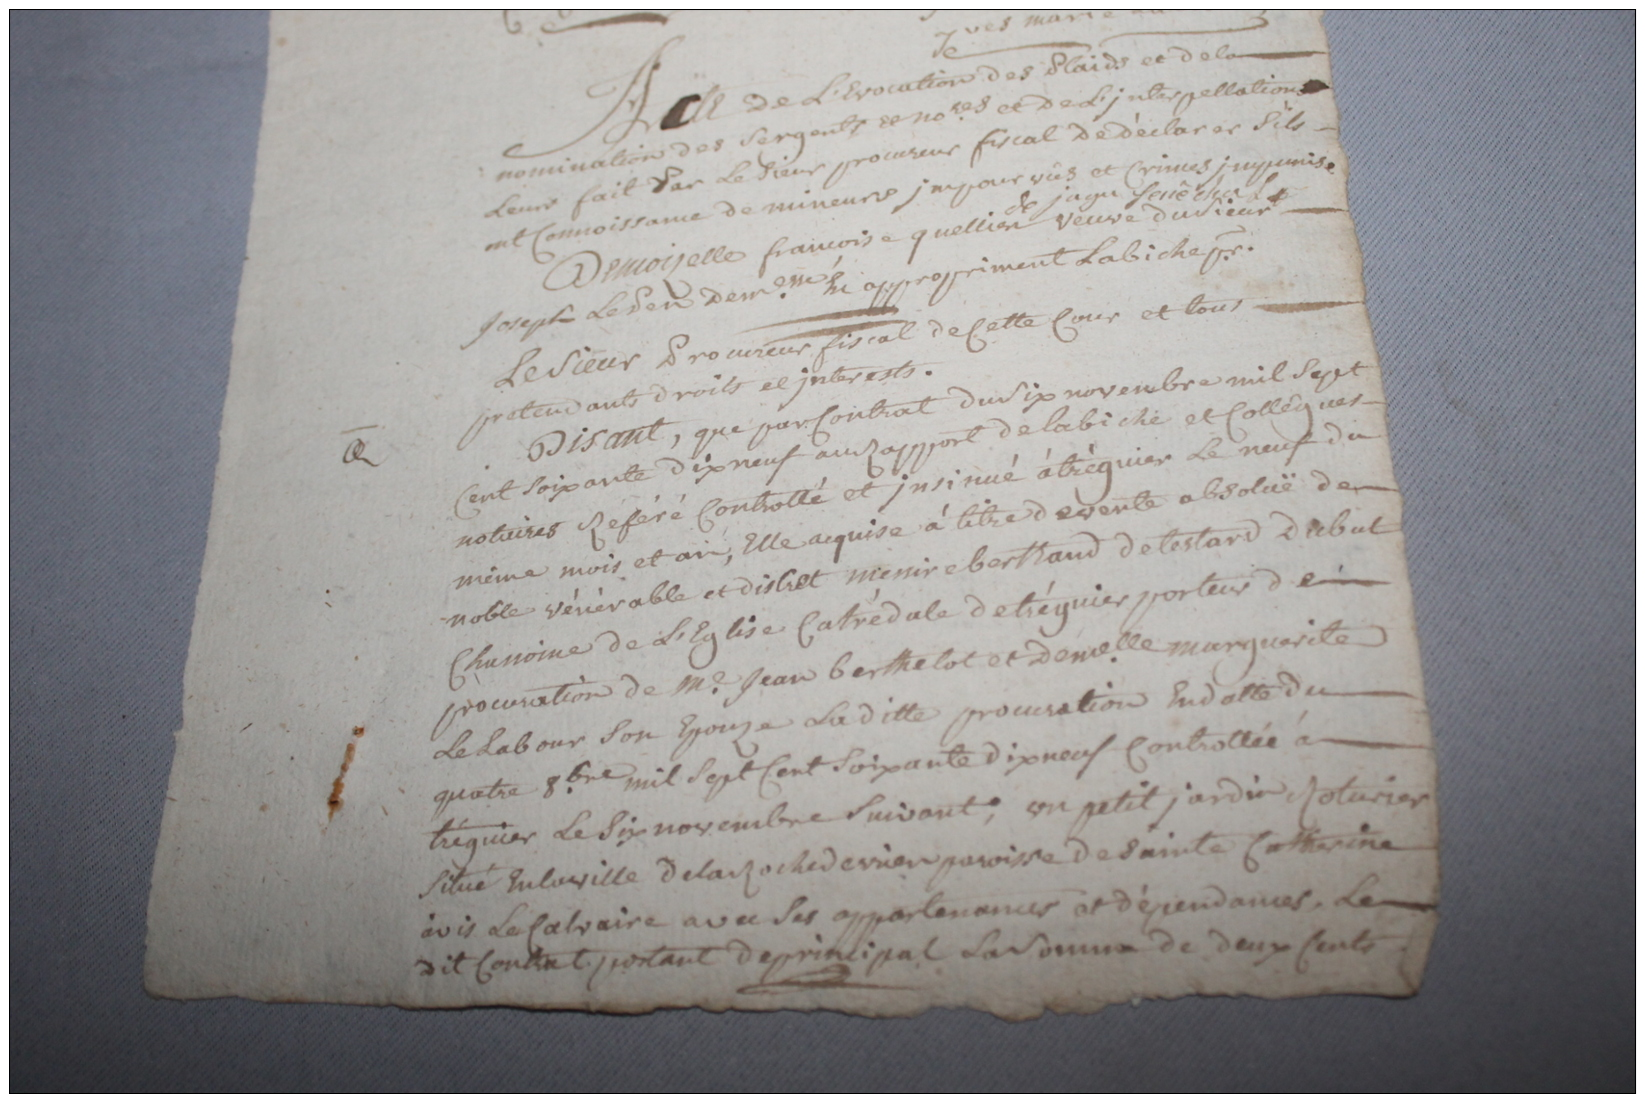 yves marie
Acte de L'Evocation des Plaids et dela
nomination des Sergents et no.res et de L'jnterpellation
Leurs fait Par Le Sieur procureur fiscal De déclarer S'ils
ont Connoissance de mineurs jmpourvûs et Crimes jmpunis.
Demoiselle francoise quellien veuve du Sieur
Joseph Le Den Dem.em appropriment Labiche pr.
Le Sieur Procureur fiscal de Cette Cour et tous
pretendants droits et jnterests.
Disant, que par Contrat du Six novembre mil Sept
Cent Soixante dix neuf au Rapport de labiche et Collégues
notaires Référé Controllé et jnsinué à tréguier Le neuf du
même mois et an, Elle acquise à titre de vente absoluë de
noble vénérable et distret Chanoine de L'Eglise Catrédale de tréguier porteur de
procuration de M.e Jean berthelot et Demelle marguerite
Le Labour Son Epouze Laditte procuration En datte du
quatre 8.bre mil Sept Cent Soixante dix neuf Controllée à
tréguier Le Six novembre Suivant, un petit jardin Roturier
Situé En la ville de la Rochederrien paroisse de Sainte Catherine
avis Le Calvaire avec Ses appartenances et dépendances. Le
dit Contrat portant de principal La Somme de deux Cents